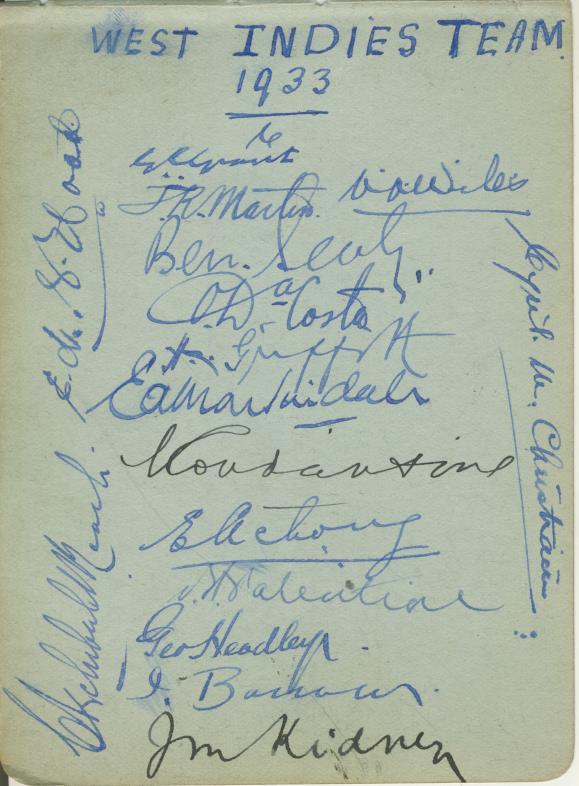 WEST INDIES TEAM
1933
G.C. Grant
F.R. Martin.
V.A. Wiles
Ben. Sealy
O. Da Costa
H. C. Griffith
E.A. Martindale
L N Constantine
E Achong
V. A. Valentine
Geo Headley.
I. Barrow.
J M Kidney
E.L.G. Hoad
Cyril. M. Christiani
C Archibald Merry